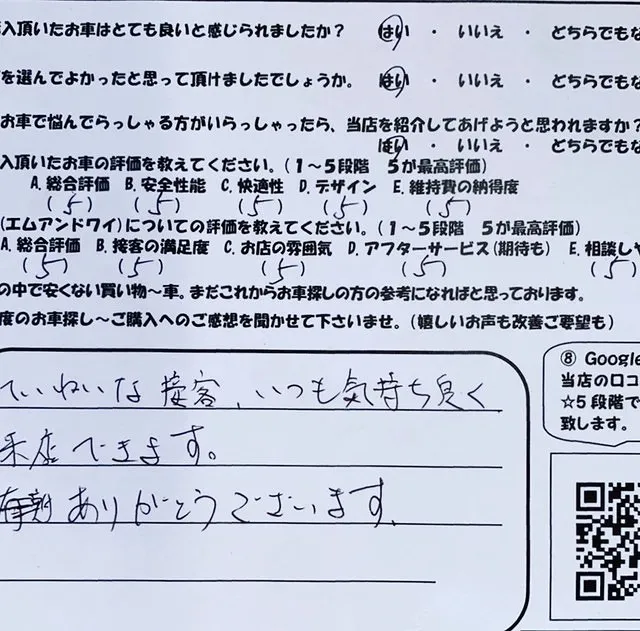 入頂いたお車はとても良いと感じられましたか？ はい ・ いいえ ・ どちらでもな
を選んでよかったと思って頂けましたでしょうか。 はい ・ いいえ ・ どちらでもな
お車で悩んでらっしゃる方がいらっしゃったら、当店を紹介してあげようと思われますか？
はい ・ いいえ ・ どちらでもな
入頂いたお車の評価を教えてください。（１～５段階 ５が最高評価）
A.総合評価 B.安全性能 C.快適性 D.デザイン E.維持費の納得度
(5) (5) (5) (5) (5)
(エムアンドワイ)についての評価を教えてください。（１～５段階 ５が最高評価）
A.総合評価 B.接客の満足度 C.お店の雰囲気 D.アフターサービス(期待も) E.相談しや
(5) (5) (5) (5) (5)
の中で安くない買い物～車。まだこれからお車探しの方の参考になればと思っております。
度のお車探し～ご購入へのご感想を聞かせて下さいませ。（嬉しいお声も改善ご要望も）
ていねいな接客、いつも気持ち良く
来店できます。
ありがとうございます。
⑧ Google
当店の口コ
☆5段階で
致します。